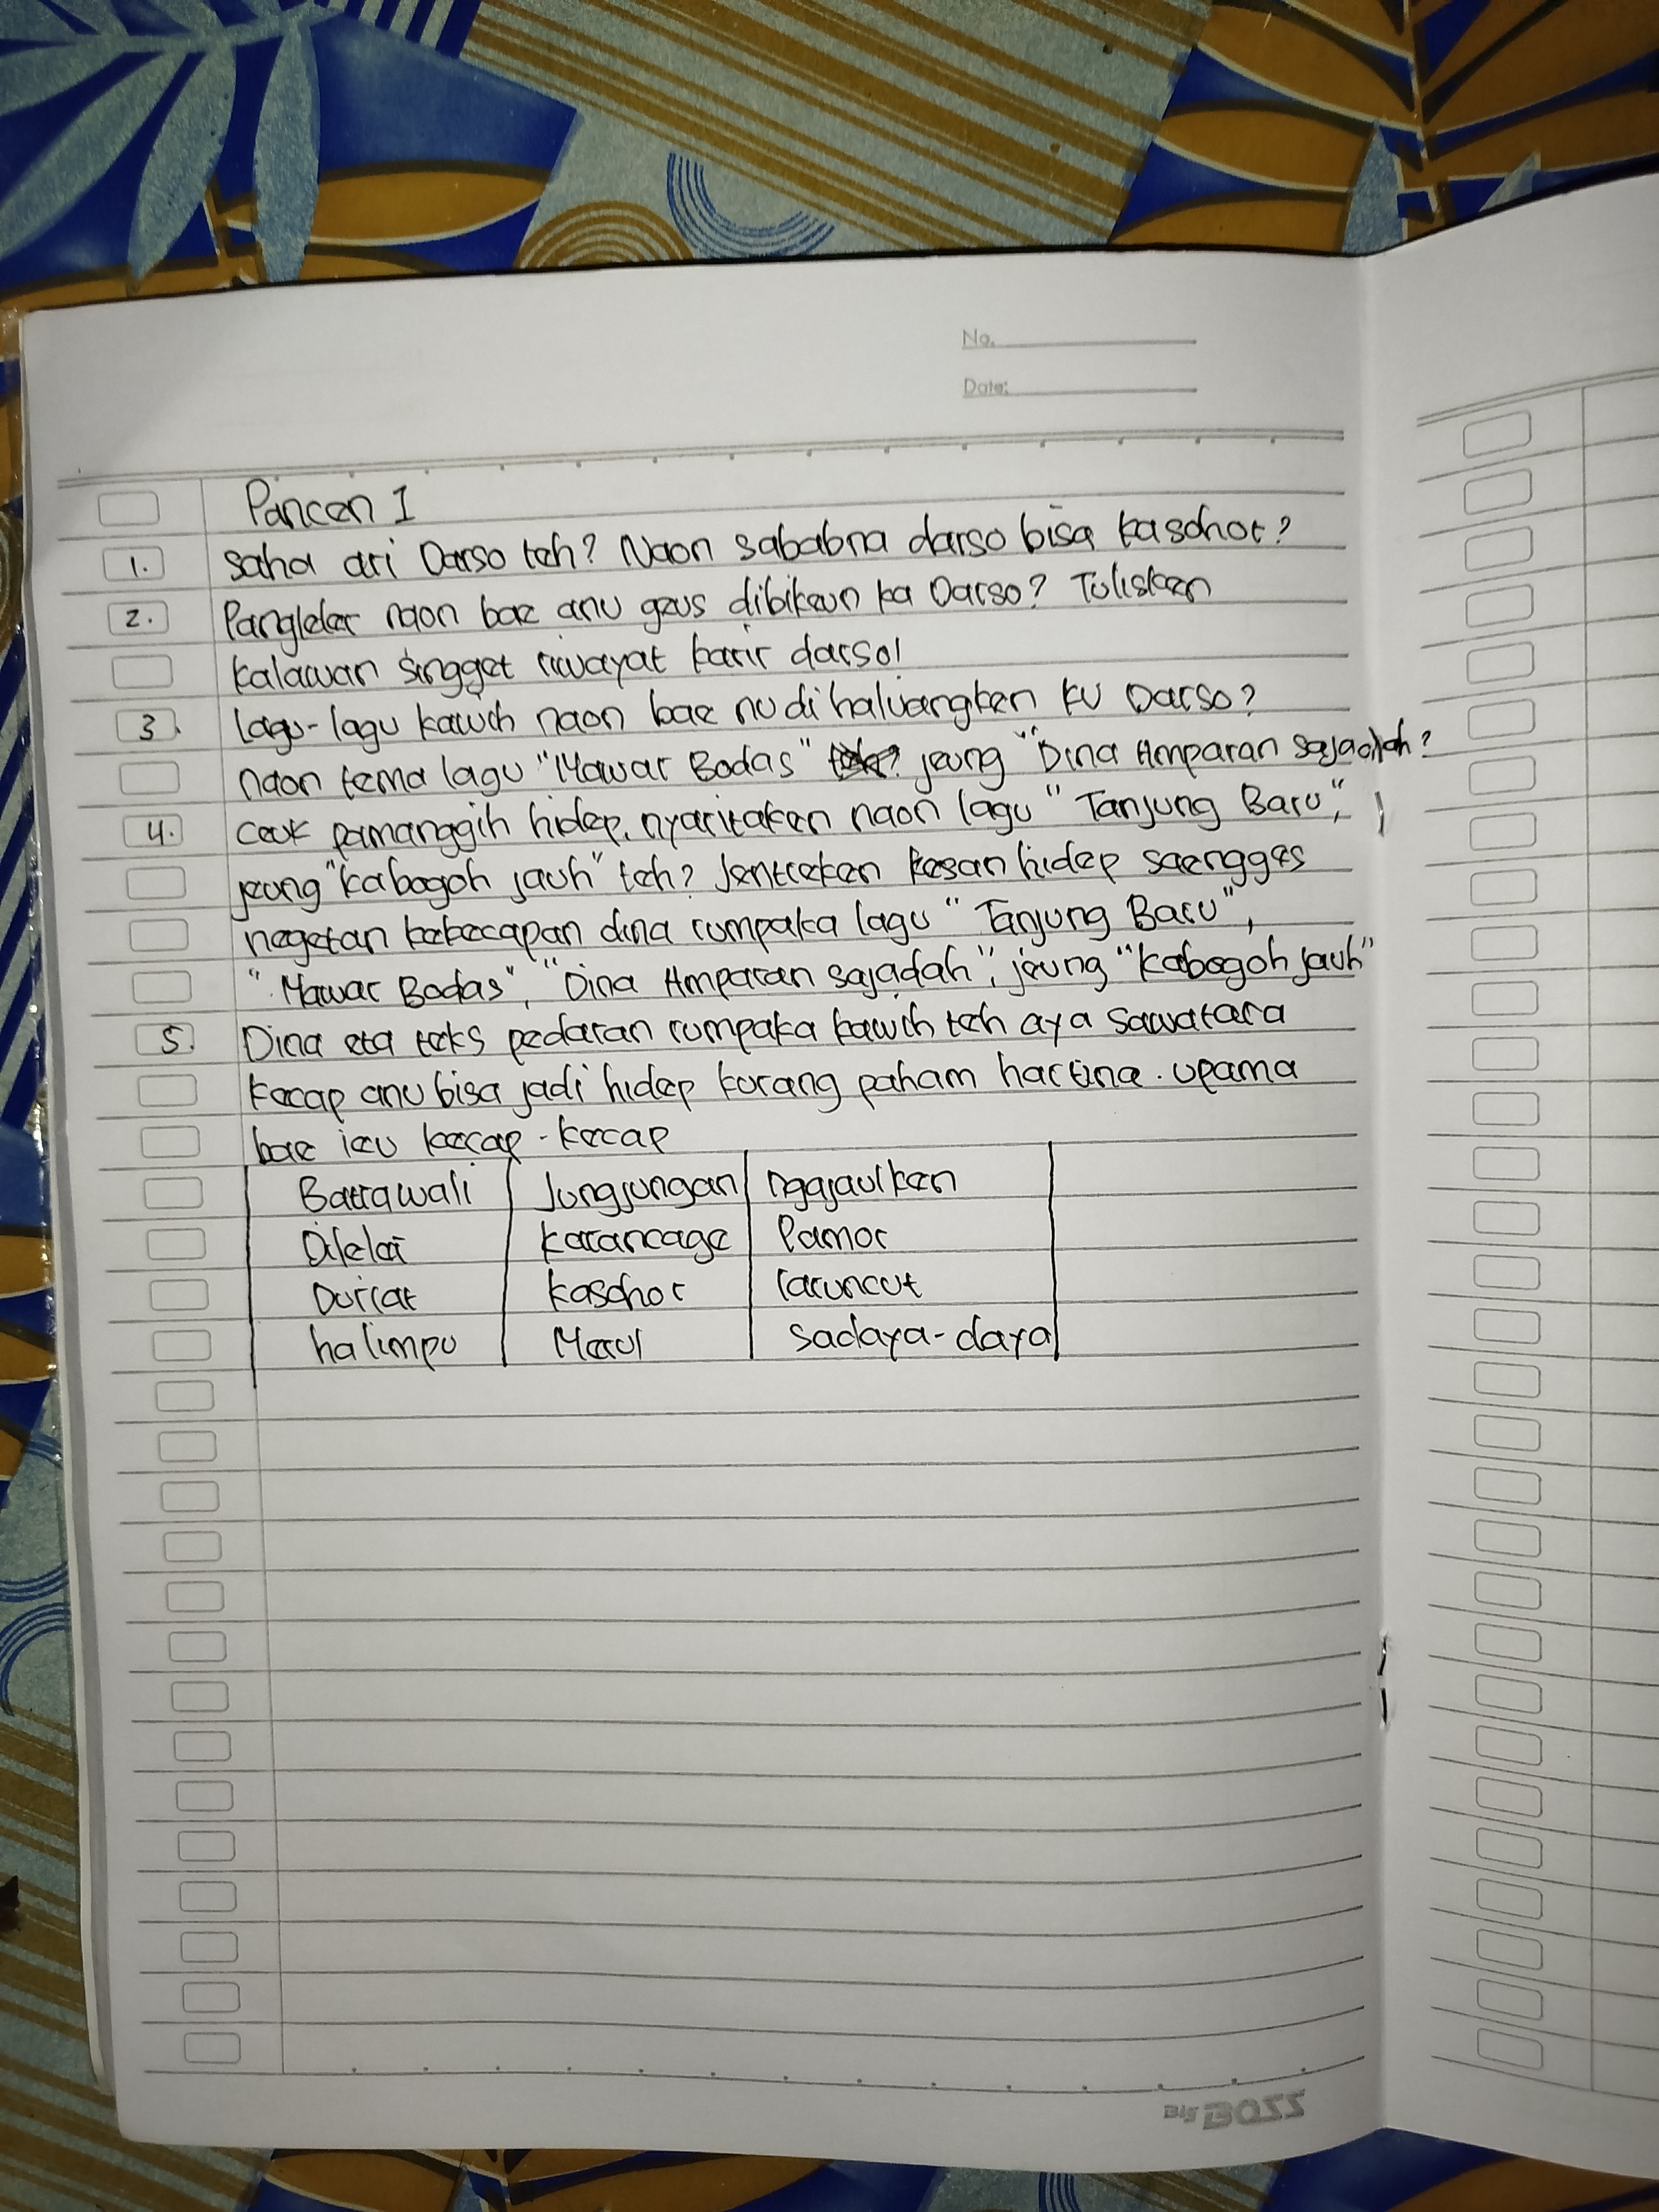 No.
Date:
Pancen I
1. saha ari Darso teh? Naon sababna darso bisa kasohor?
2. Pangleler naon bae anu geus dibikeun ka Darso? Tulisken
kalawan singget riwayat karir darso!
3. lagu-lagu kawih naon bae nu dihaluangken ku Darso?
naon tema lagu "Mawar Bodas" jeung "Dina Amparan sajadah?
4. ceuk pamanggih hidep, nyaritaken naon lagu "Tanjung Baru",
jeung "kabogoh jauh" teh? Jentreken kesan hidep saengges
negetan kekecapan dina rumpaka lagu "Tanjung Baru",
"Mawar Bodas", "Dina Amparan sajadah", jeung "kabogoh jauh"
5. Dina eta teks pedaran rumpaka kawih teh aya sawatara
kecap anu bisa jadi hidep kurang paham hartina. upama
bae ieu kecap-kecap
Batrawali Jungjungan ngajaulken
Dilelar karancage Pamor
Duriat kasohor raruncut
halimpu Meul sadaya-daya
BIG BOSS